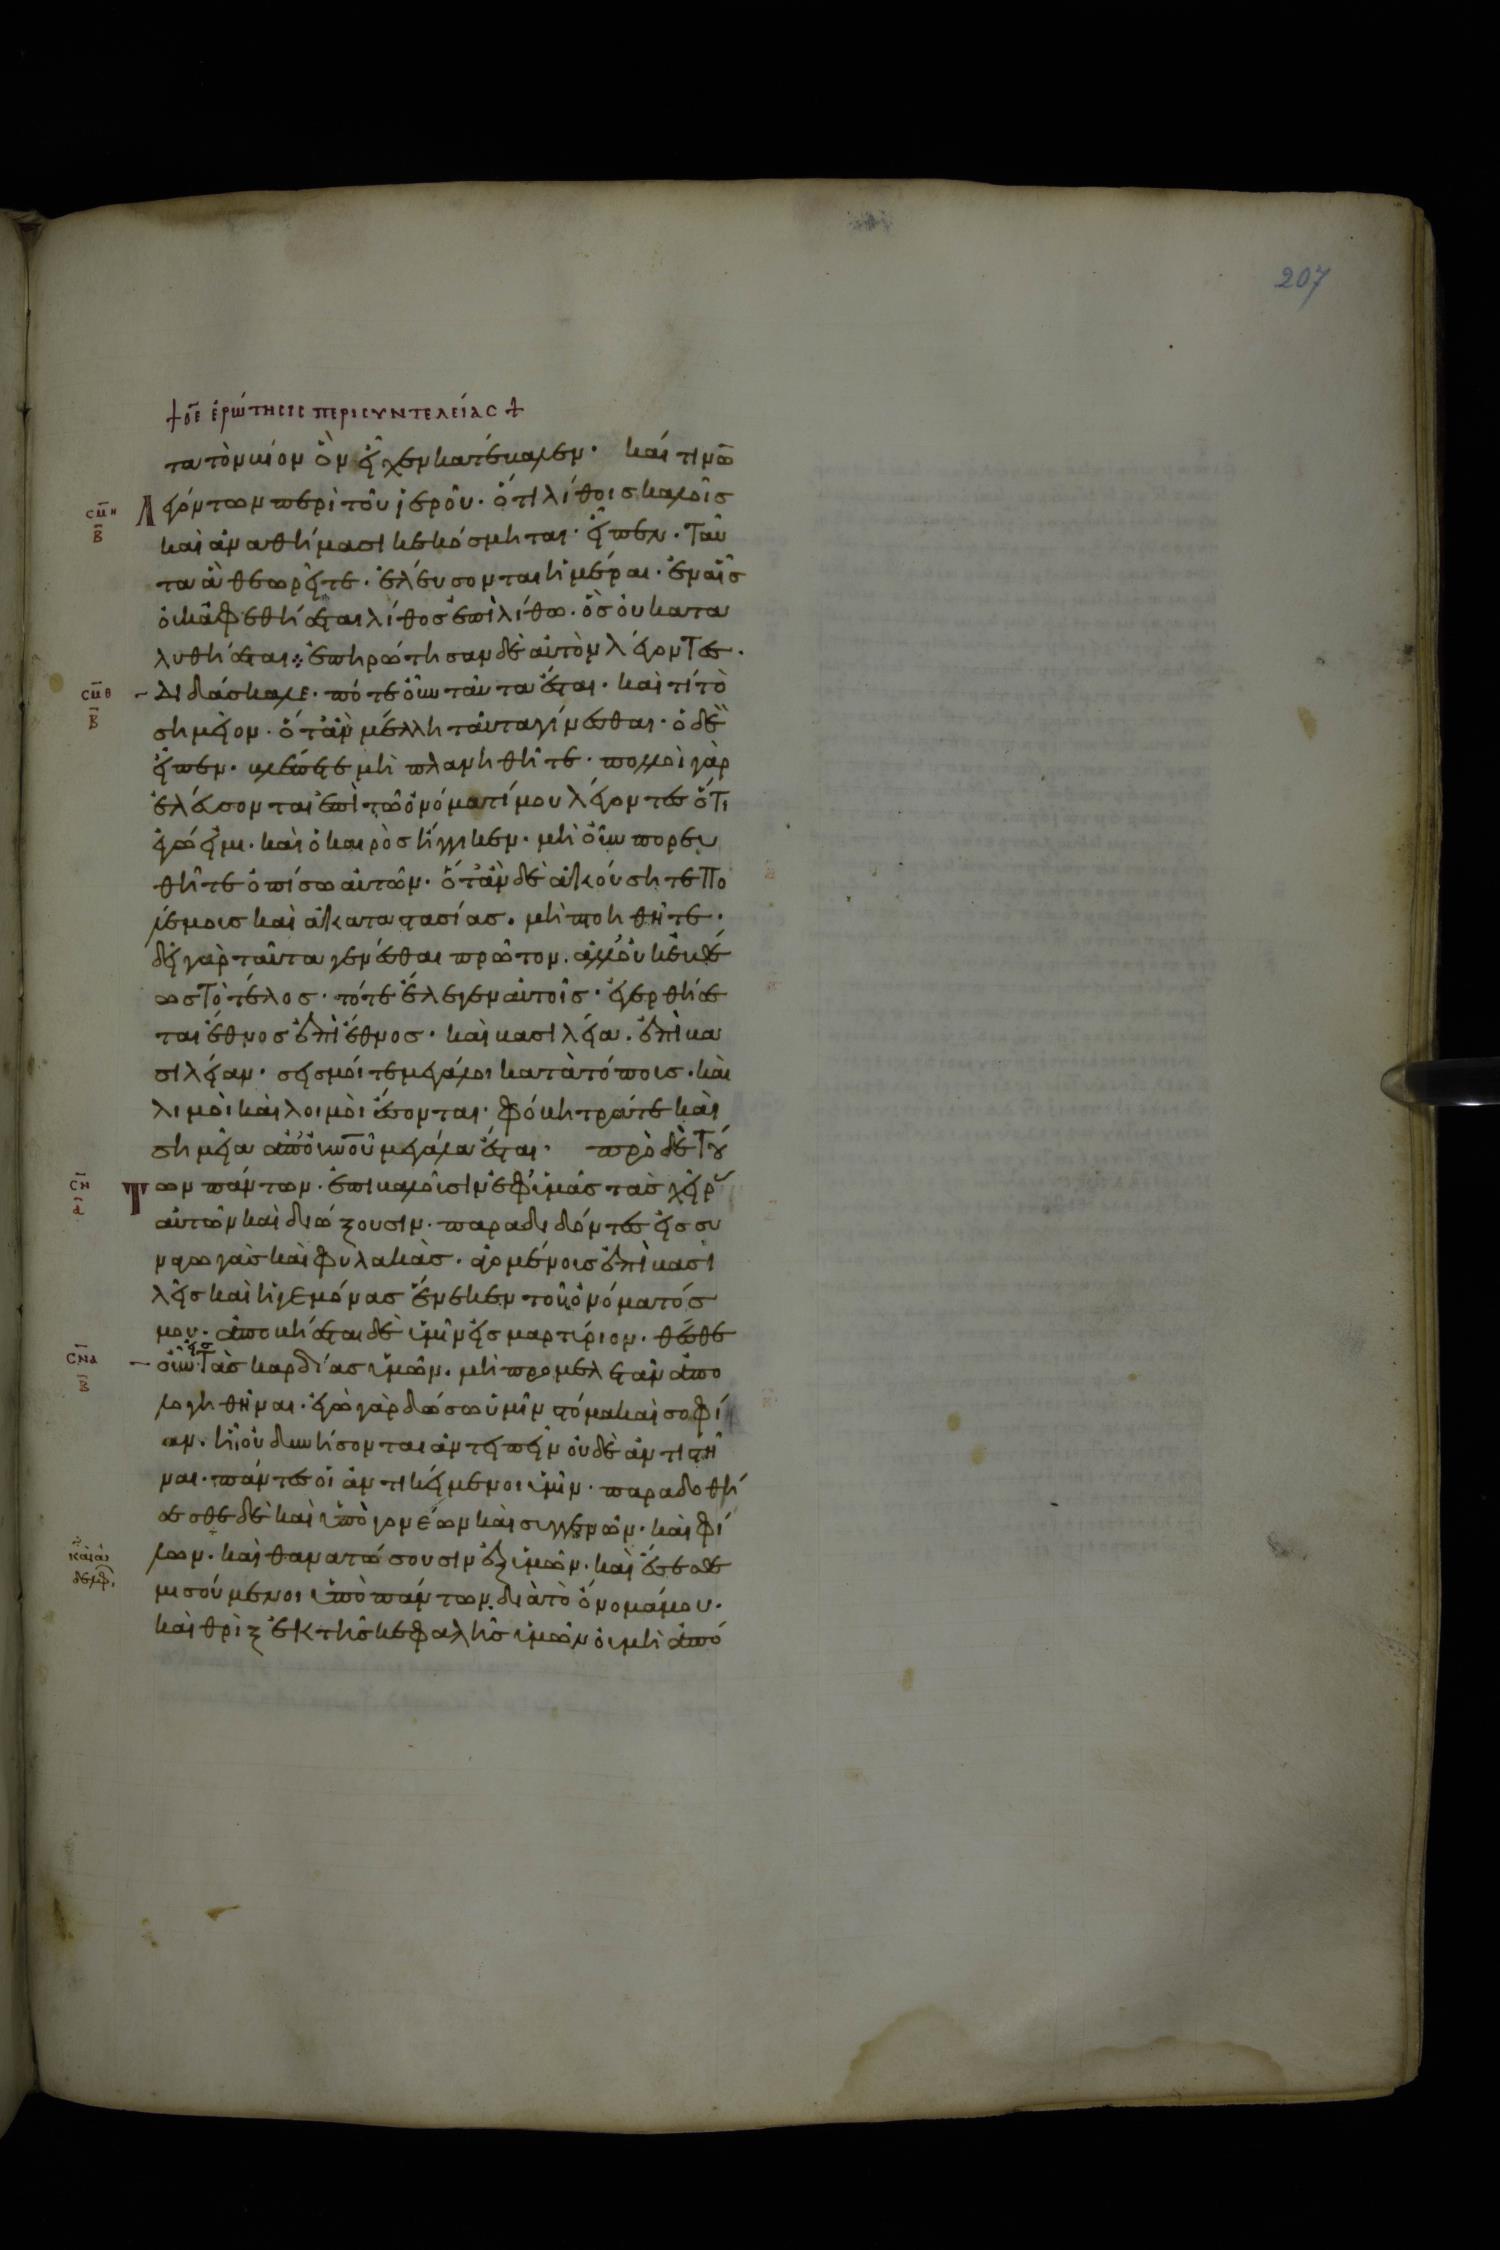 207
† οε ἐρώτησις περι συντελείας †
τα τὸν βίον ὃν εἶχεν κατέβαλεν· καί τινῶ
σμη β
λεγόντων περὶ τοῦ ἱεροῦ· ὅτι λίθοις καλοῖς
καὶ ἀναθήμασι κεκόσμηται· εἶπεν· ταῦ
τα ἃ θεωρεῖτε· ἐλεύσονται ἡμέραι· ἐν αἷς
οὐκ ἀφεθήσεται λίθος ἐπὶ λίθω· ὃς οὐ κατα
λυθήσεται· ἐπηρώτησαν δὲ αὐτὸν λέγοντες·
σμθ β
διδάσκαλε· πότε οὖν ταῦτα ἔσται· καὶ τί τὸ
σημεῖον· ὅταν μέλλη ταῦτα γίνεσθαι· ὁ δὲ
εἶπεν· βλέπετε μὴ πλανηθῆτε· πολλοὶ γὰρ
ἐλεύσονται ἐπὶ τῶ ὀνόματί μου λέγοντες ὅτι
ἐγώ εἰμι· καὶ ὁ καιρὸς ἤγγικεν· μὴ οὖν πορευ
θῆτε ὀπίσω αὐτῶν· ὅταν δὲ ἀκούσητε πο
λέμους καὶ ἀκαταστασίας· μὴ πτοηθῆτε·
δεῖ γὰρ ταῦτα γενέσθαι πρῶτον· ἀλλ' οὐκ εὐθέ
ως τὸ τέλος· τότε ἔλεγεν αὐτοῖς· ἐγερθήσε
ται ἔθνος ἐπὶ ἔθνος· καὶ βασιλεία· ἐπὶ βα
σιλείαν· σεισμοί τε μεγάλοι κατὰ τόπους· καὶ
λιμοὶ καὶ λοιμοὶ ἔσονται· φόβητρά τε καὶ
σημεῖα ἀπὸ οὐνοῦ μεγάλα ἔσται· πρὸ δὲ τού
σν α
των πάντων· ἐπιβαλοῦσιν ἐφ' ὑμᾶς τὰς χεῖρ
αὐτῶν καὶ διώξουσιν· παραδιδόντες εἰς συ
ναγωγὰς καὶ φυλακὰς· ἀγομένους ἐπὶ βασι
λεῖς καὶ ἡγεμόνας ἕνεκεν τοῦ ὀνόματός
μου· ἀποβήσεται δὲ ὑμῖν εἰς μαρτύριον· θέσθε
σνα β
οὖν εἰς τὰς καρδίας ὑμῶν· μὴ προμελετᾶν ἀπο
λογηθῆναι· ἐγὼ γὰρ δώσω ὑμῖν στόμα καὶ σοφί
αν· ἧ οὐ δυνήσονται ἀντειπεῖν οὐδὲ ἀντιστῆ
ναι· πάντες οἱ ἀντικείμενοι ὑμῖν· παραδοθή
σεσθε δὲ καὶ ὑπὸ γονέων καὶ συγγενῶν· καὶ φί
καὶ ἀ
δελφῶ
λων· καὶ θανατώσουσιν ἐξ ὑμῶν· καὶ ἔσεσθε
μισούμενοι ὑπὸ πάντων διὰ τὸ ὄνομά μου·
καὶ θρὶξ ἐκ τῆς κεφαλῆς ὑμῶν οὐ μὴ ἀπό